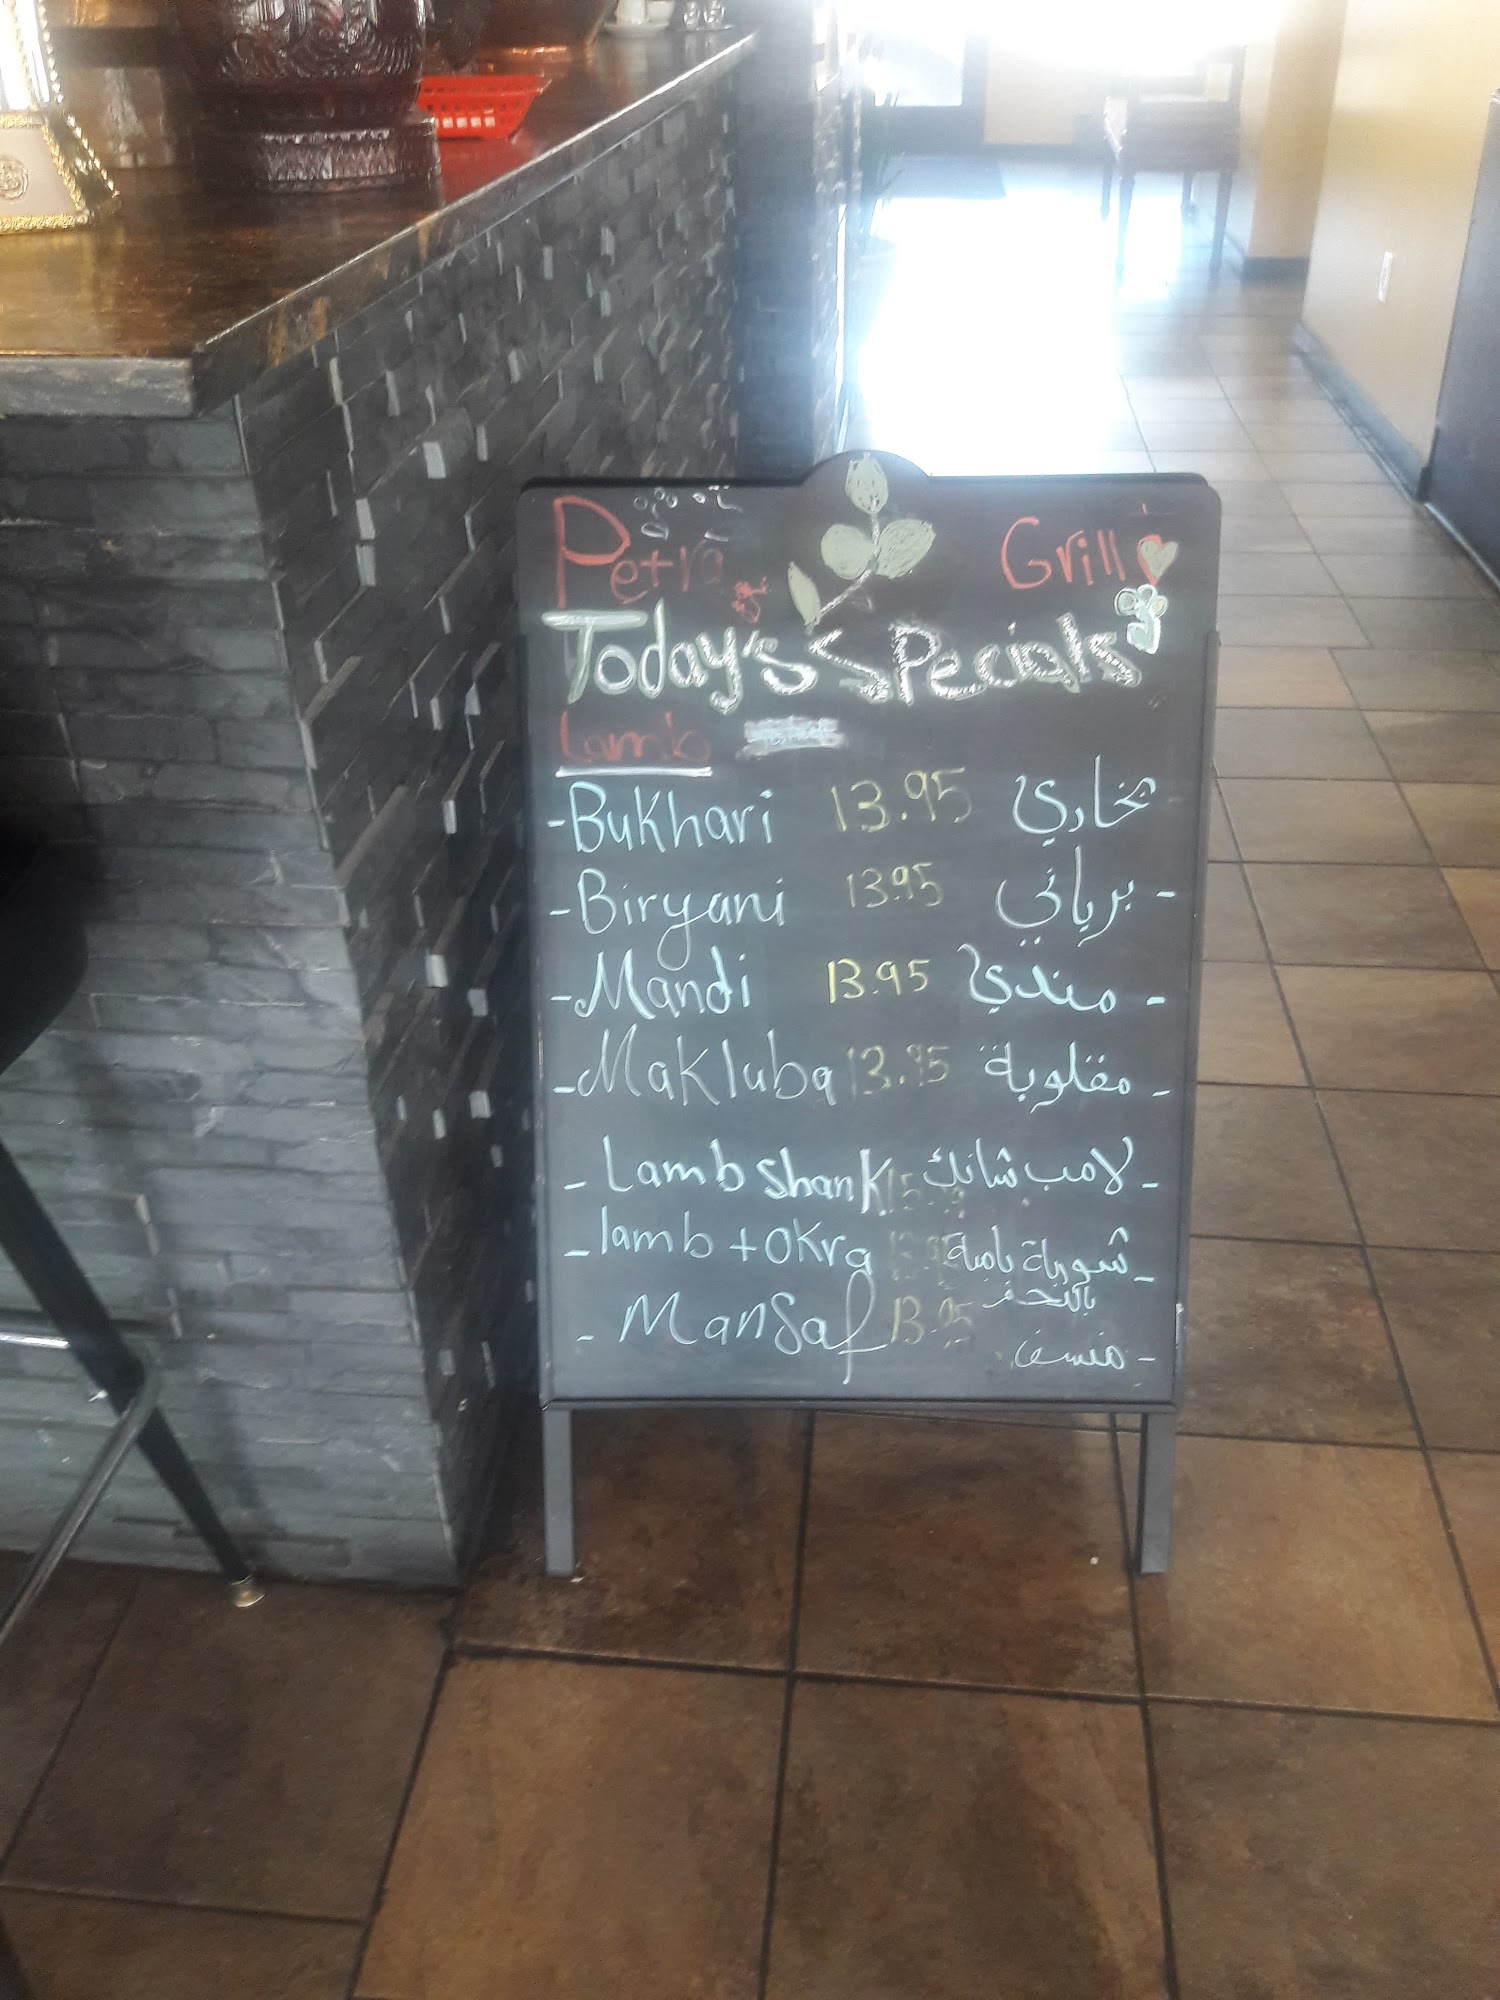 Petra Grill
Today's Specials
Lamb
-Bukhari 13.95 بخاري
-Biryani 13.95 برياني -
-Mandi 13.95 مندي -
-Makluba 13.95 مقلوبة -
- Lamb Shank لامب شانك -
- lamb + OKra شوربة بامية -
- Mansaf 13.95 منسف -